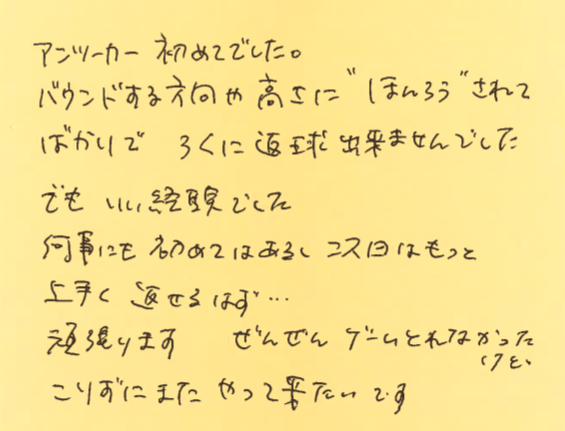 アンツーカー 初めてでした。
バウンドする方向や高さに"ほんろう"されて
ばかりで ろくに返球出来ませんでした
でも いい経験でした
何事にも初めてはあるし 次回はもっと
上手く 返せるはず…
頑張ります ぜんぜん ゲームとれなかった
けど、
こりずにまた やって来たいです